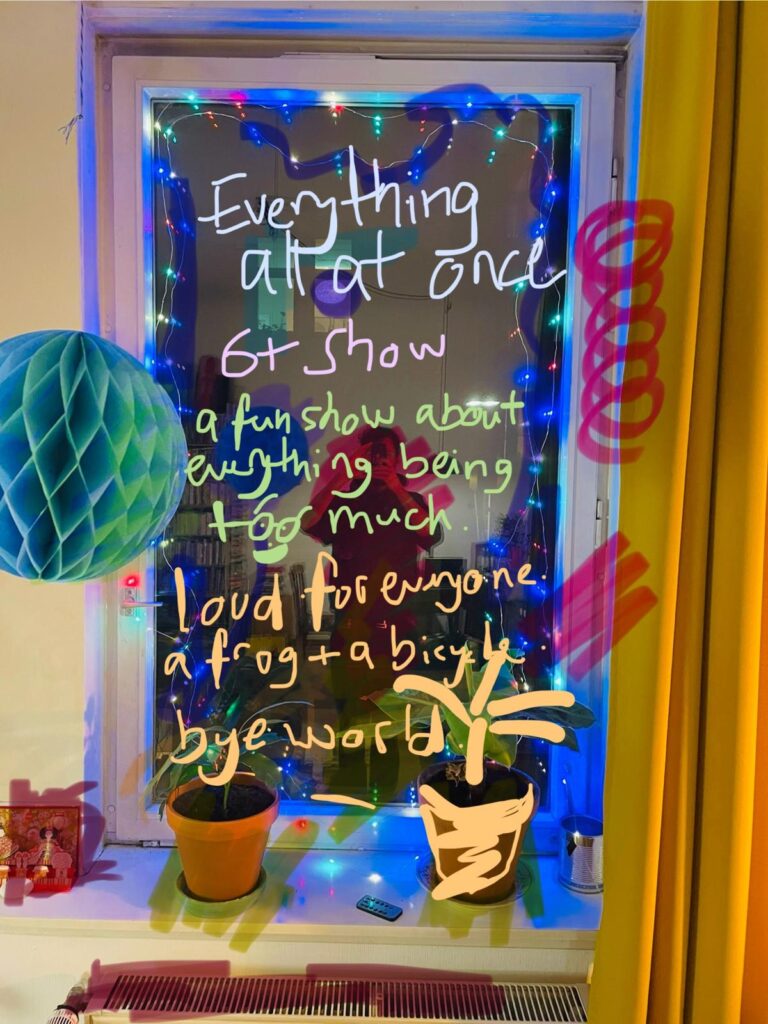 Everything
all at once
6+ show
a fun show about
everything being
too much.
loud for everyone.
a frog + a bicycle.
bye world